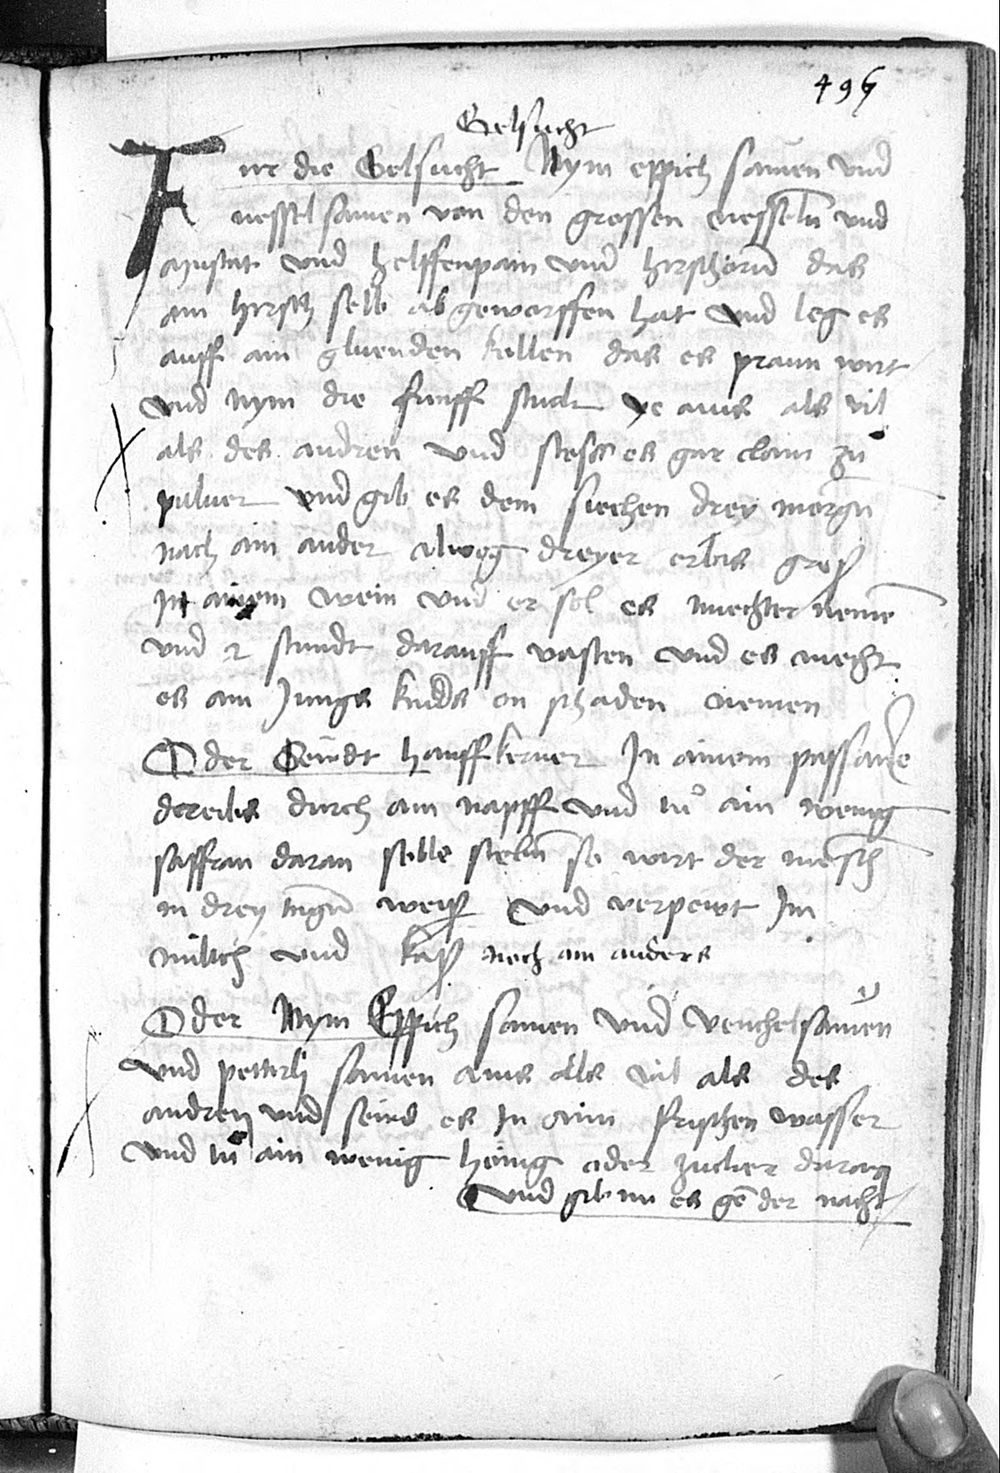 496
Gelsucht
Fur die Gelsucht Nym eppich samen vnd
nessel samen von den grossen nesseln vnd
vnd helffenpain vnd hirschorn das
ain hirsch selb ab geworffen hat vnd leg es
auff ain gluenden kollen das es praun wirt
vnd nym die funff stuck ye ains als vil
als des andren vnd stoss es gar clain zu
puluer vnd gib es dem siechen drey morgn
nach ain ander alweg dreyer erbis gros
In ainem wein vnd er sol es nuechter nemen
vnd 2 stundt darauff vasten vnd es mecht
es ain Jungs kindt on schaden nemen
Oder hanff kerner In ainem
durch ain napff vnd tu ain wenig
saffran daran so wirt der mensch
in drey tagn weis vnd verpewt Im
milich vnd kas noch ain anders
Oder Nym Eppich samen vnd venchelsamen
vnd petterli samen ains alls vil als des
andren vnd seud es In aim frischen wasser
vnd tu ain wenig honig oder zucker daran
vnd gib im es gen der nacht